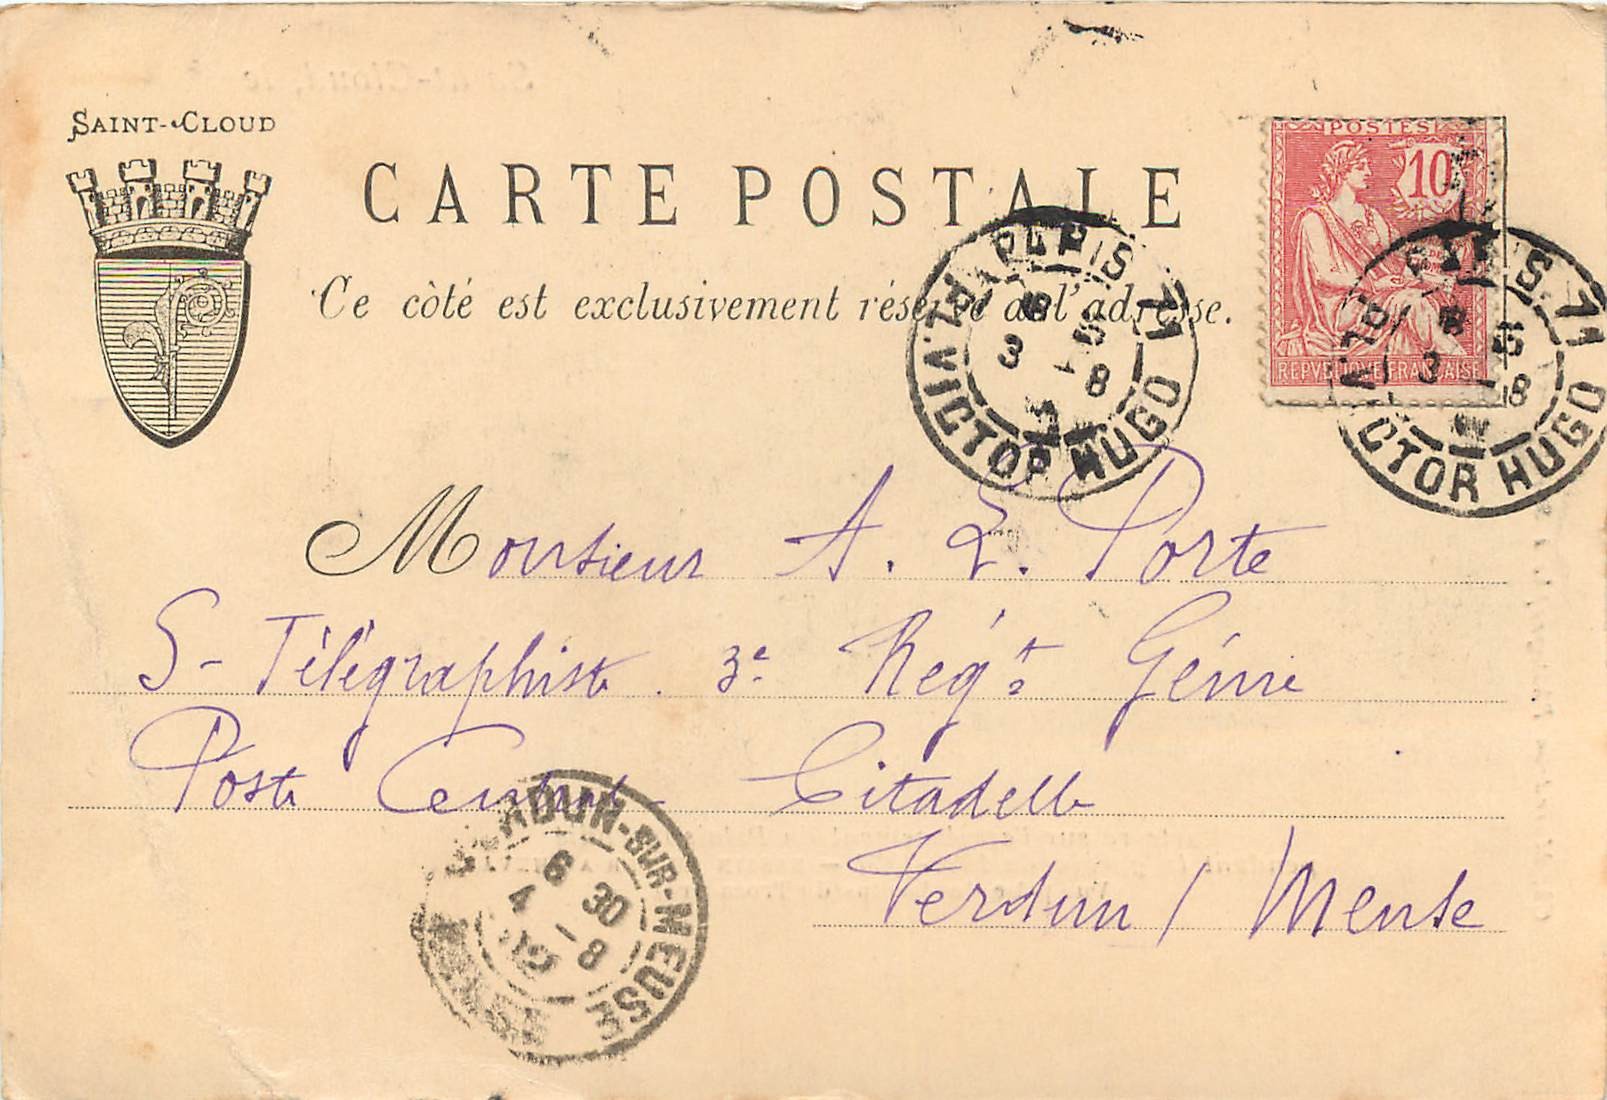 SAINT-CLOUD
CARTE POSTALE
Ce côté est exclusivement réservé à l'adresse.
POSTES
10
REPVBLIQVE FRANÇAISE
PARIS 71
PL. VICTOR HUGO
3 - 8
PARIS 71
PL. VICTOR HUGO
3 - 8
Monsieur A. L. Porte
S- Télégraphiste 3e Regt Génie
Poste Central Citadelle
Verdun / Meuse
VERDUN-SUR-MEUSE
6 30
4 - 8